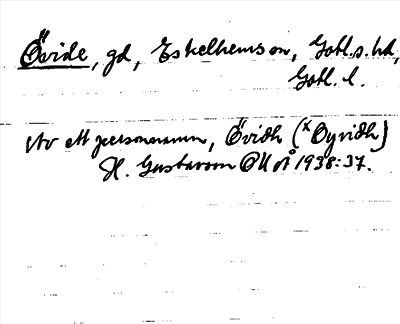 Övide, gd, Eskelhems sn, Gotl. s. hd,
Gotl. l.
Av ett personnamn, Övidh (×Øyvidh)
H. Gustavson OUÅ 1938:37.